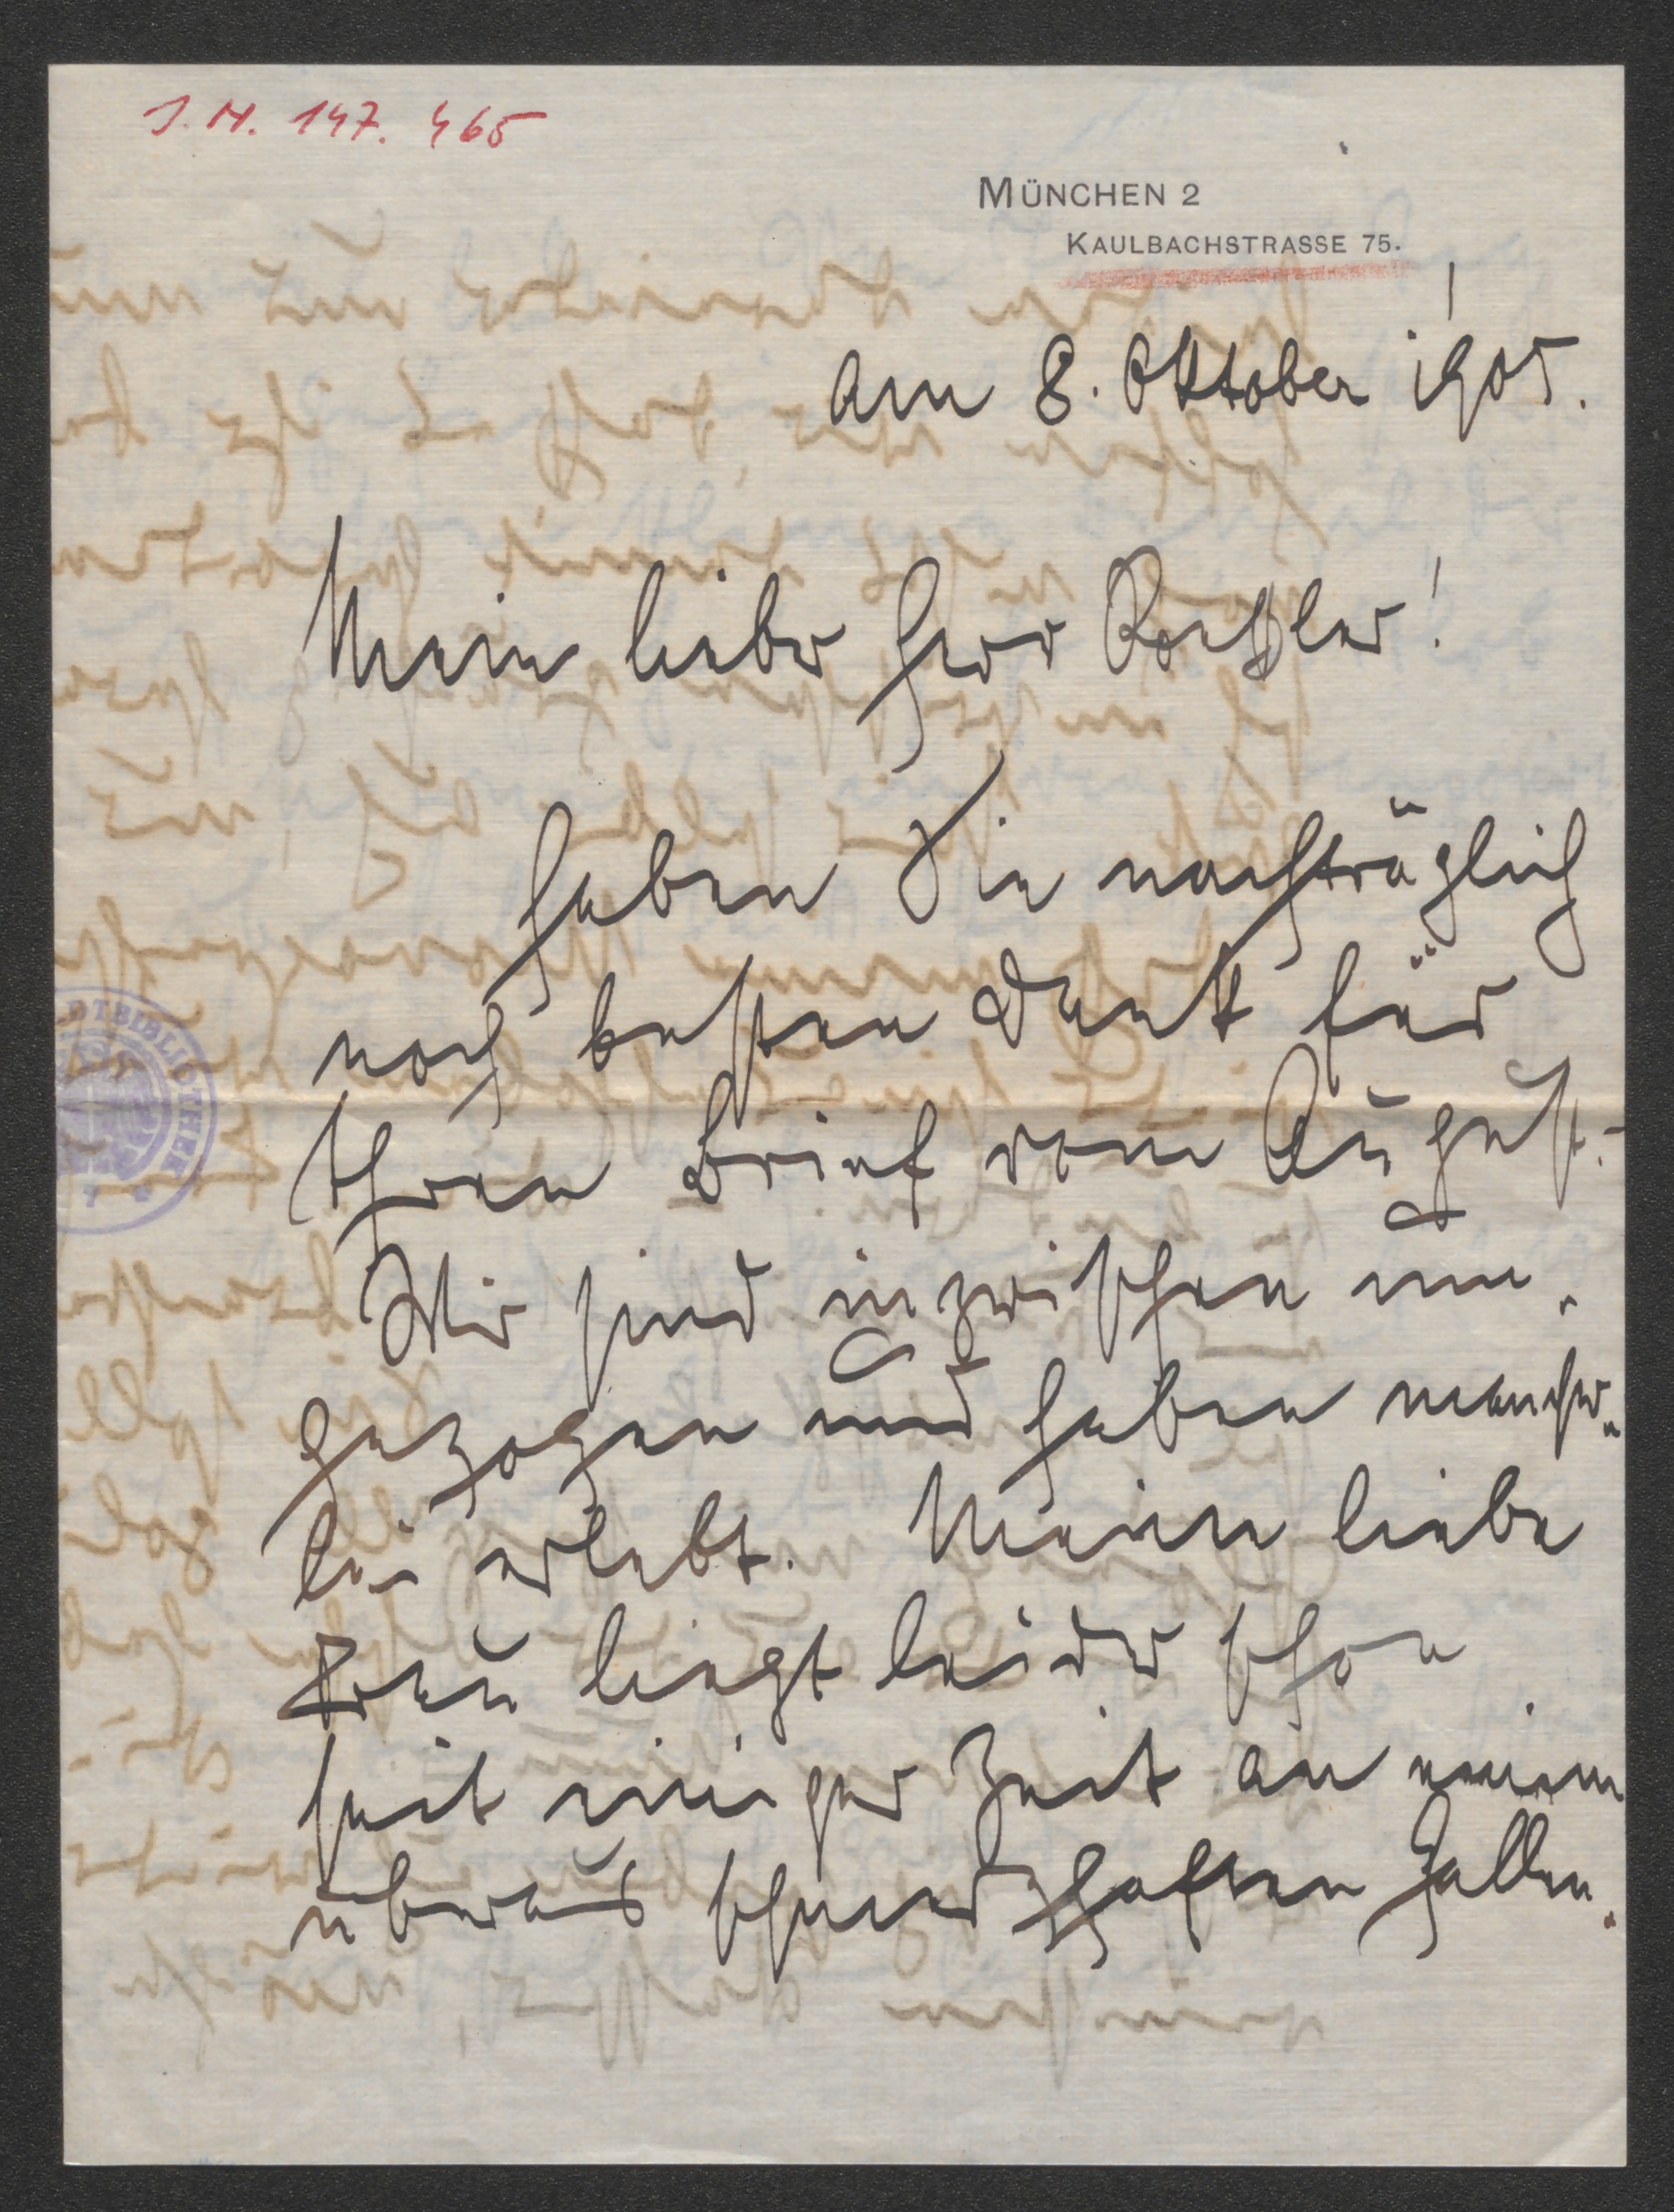 J. N. 147. 465
MÜNCHEN 2
KAULBACHSTRASSE 75.
am 8. Oktober 1905.
Mein lieber Herr Roeßler!
Haben Sie nachträglich
noch besten Dank für
Ihren Brief vom August.
Wir sind inzwischen um-
gezogen und haben mancher-
lei erlebt. Meine liebe
Frau liegt leider schon
seit einiger Zeit an einem
überaus schmerzhaften Gallen-